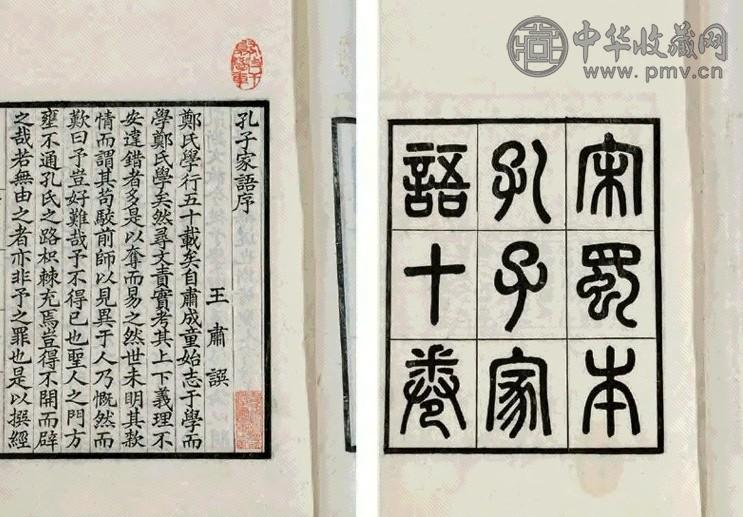 中华收藏网
www.pmv.cn
宋蜀本
孔子家
語十卷
孔子家語序
王肅譔
鄭氏學行五十載矣自肅成童始志于學而
學鄭氏學矣然尋文責實考其上下義理不
安違錯者多是以奪而易之然世未明其款
情而謂其苟駮前師以見異于人乃慨然而
歎曰予豈好難哉予不得已也聖人之門方
壅不通孔氏之路枳棘充焉豈得不開而辟
之哉若無由之者亦非予之罪也是以撰經